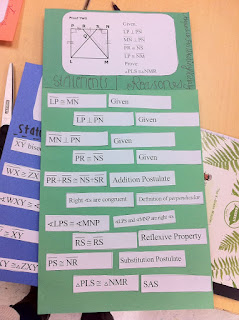 Proof Two!
Given:
LP ⊥ PN
MN ⊥ PN
PR ≅ NS
LP ≅ NM
Prove:
△PLS ≅ △NMR
Statements Reasons
LP ≅ MN Given
LP ⊥ PN Given
MN ⊥ PN Given
PR ≅ NS Given
PR+RS ≅ NS+SR Addition Postulate
Right ∢s are congruent Definition of perpendicular
∢LPS ≅ ∢MNP ∢LPS and ∢MNP are right ∢s
RS ≅ RS Reflexive Property
PS ≅ NR Substitution Postulate
△PLS ≅ △NMR SAS
XY
WX ≅ Z
∢WXY ≅
XY ≅
△XY ≅ △ZX